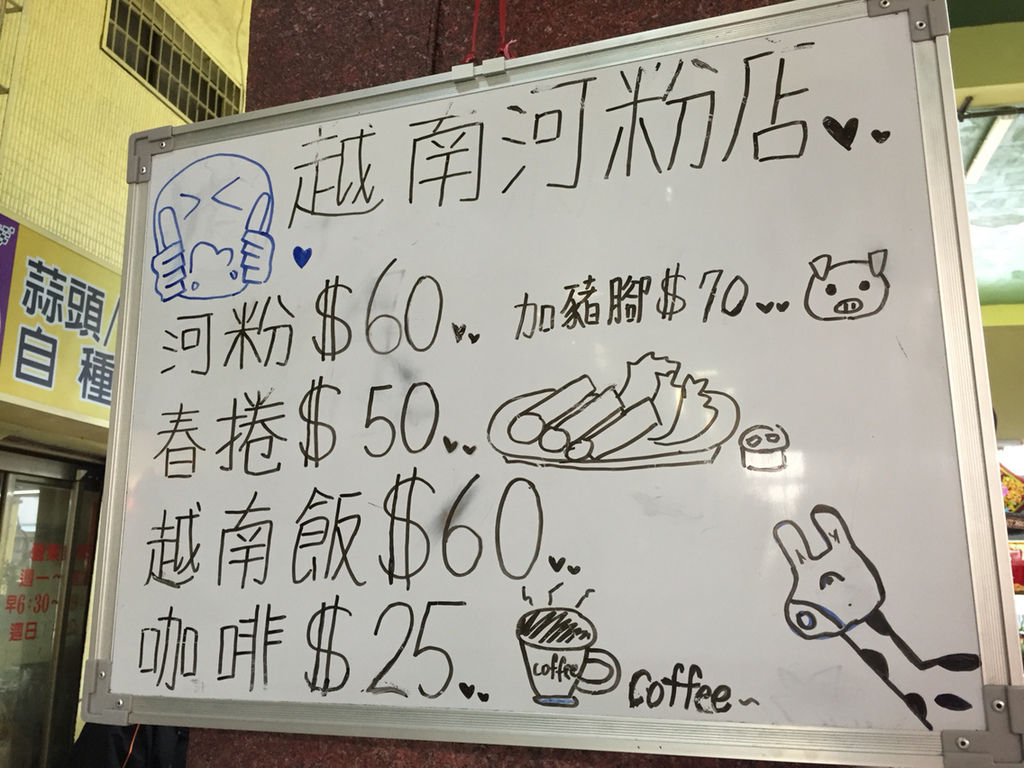 越南河粉店
河粉$60
加豬腳$70
春捲$50
越南飯$60
咖啡$25
coffee
coffee~
蒜頭/
自種
週一~
早6:30~
週日